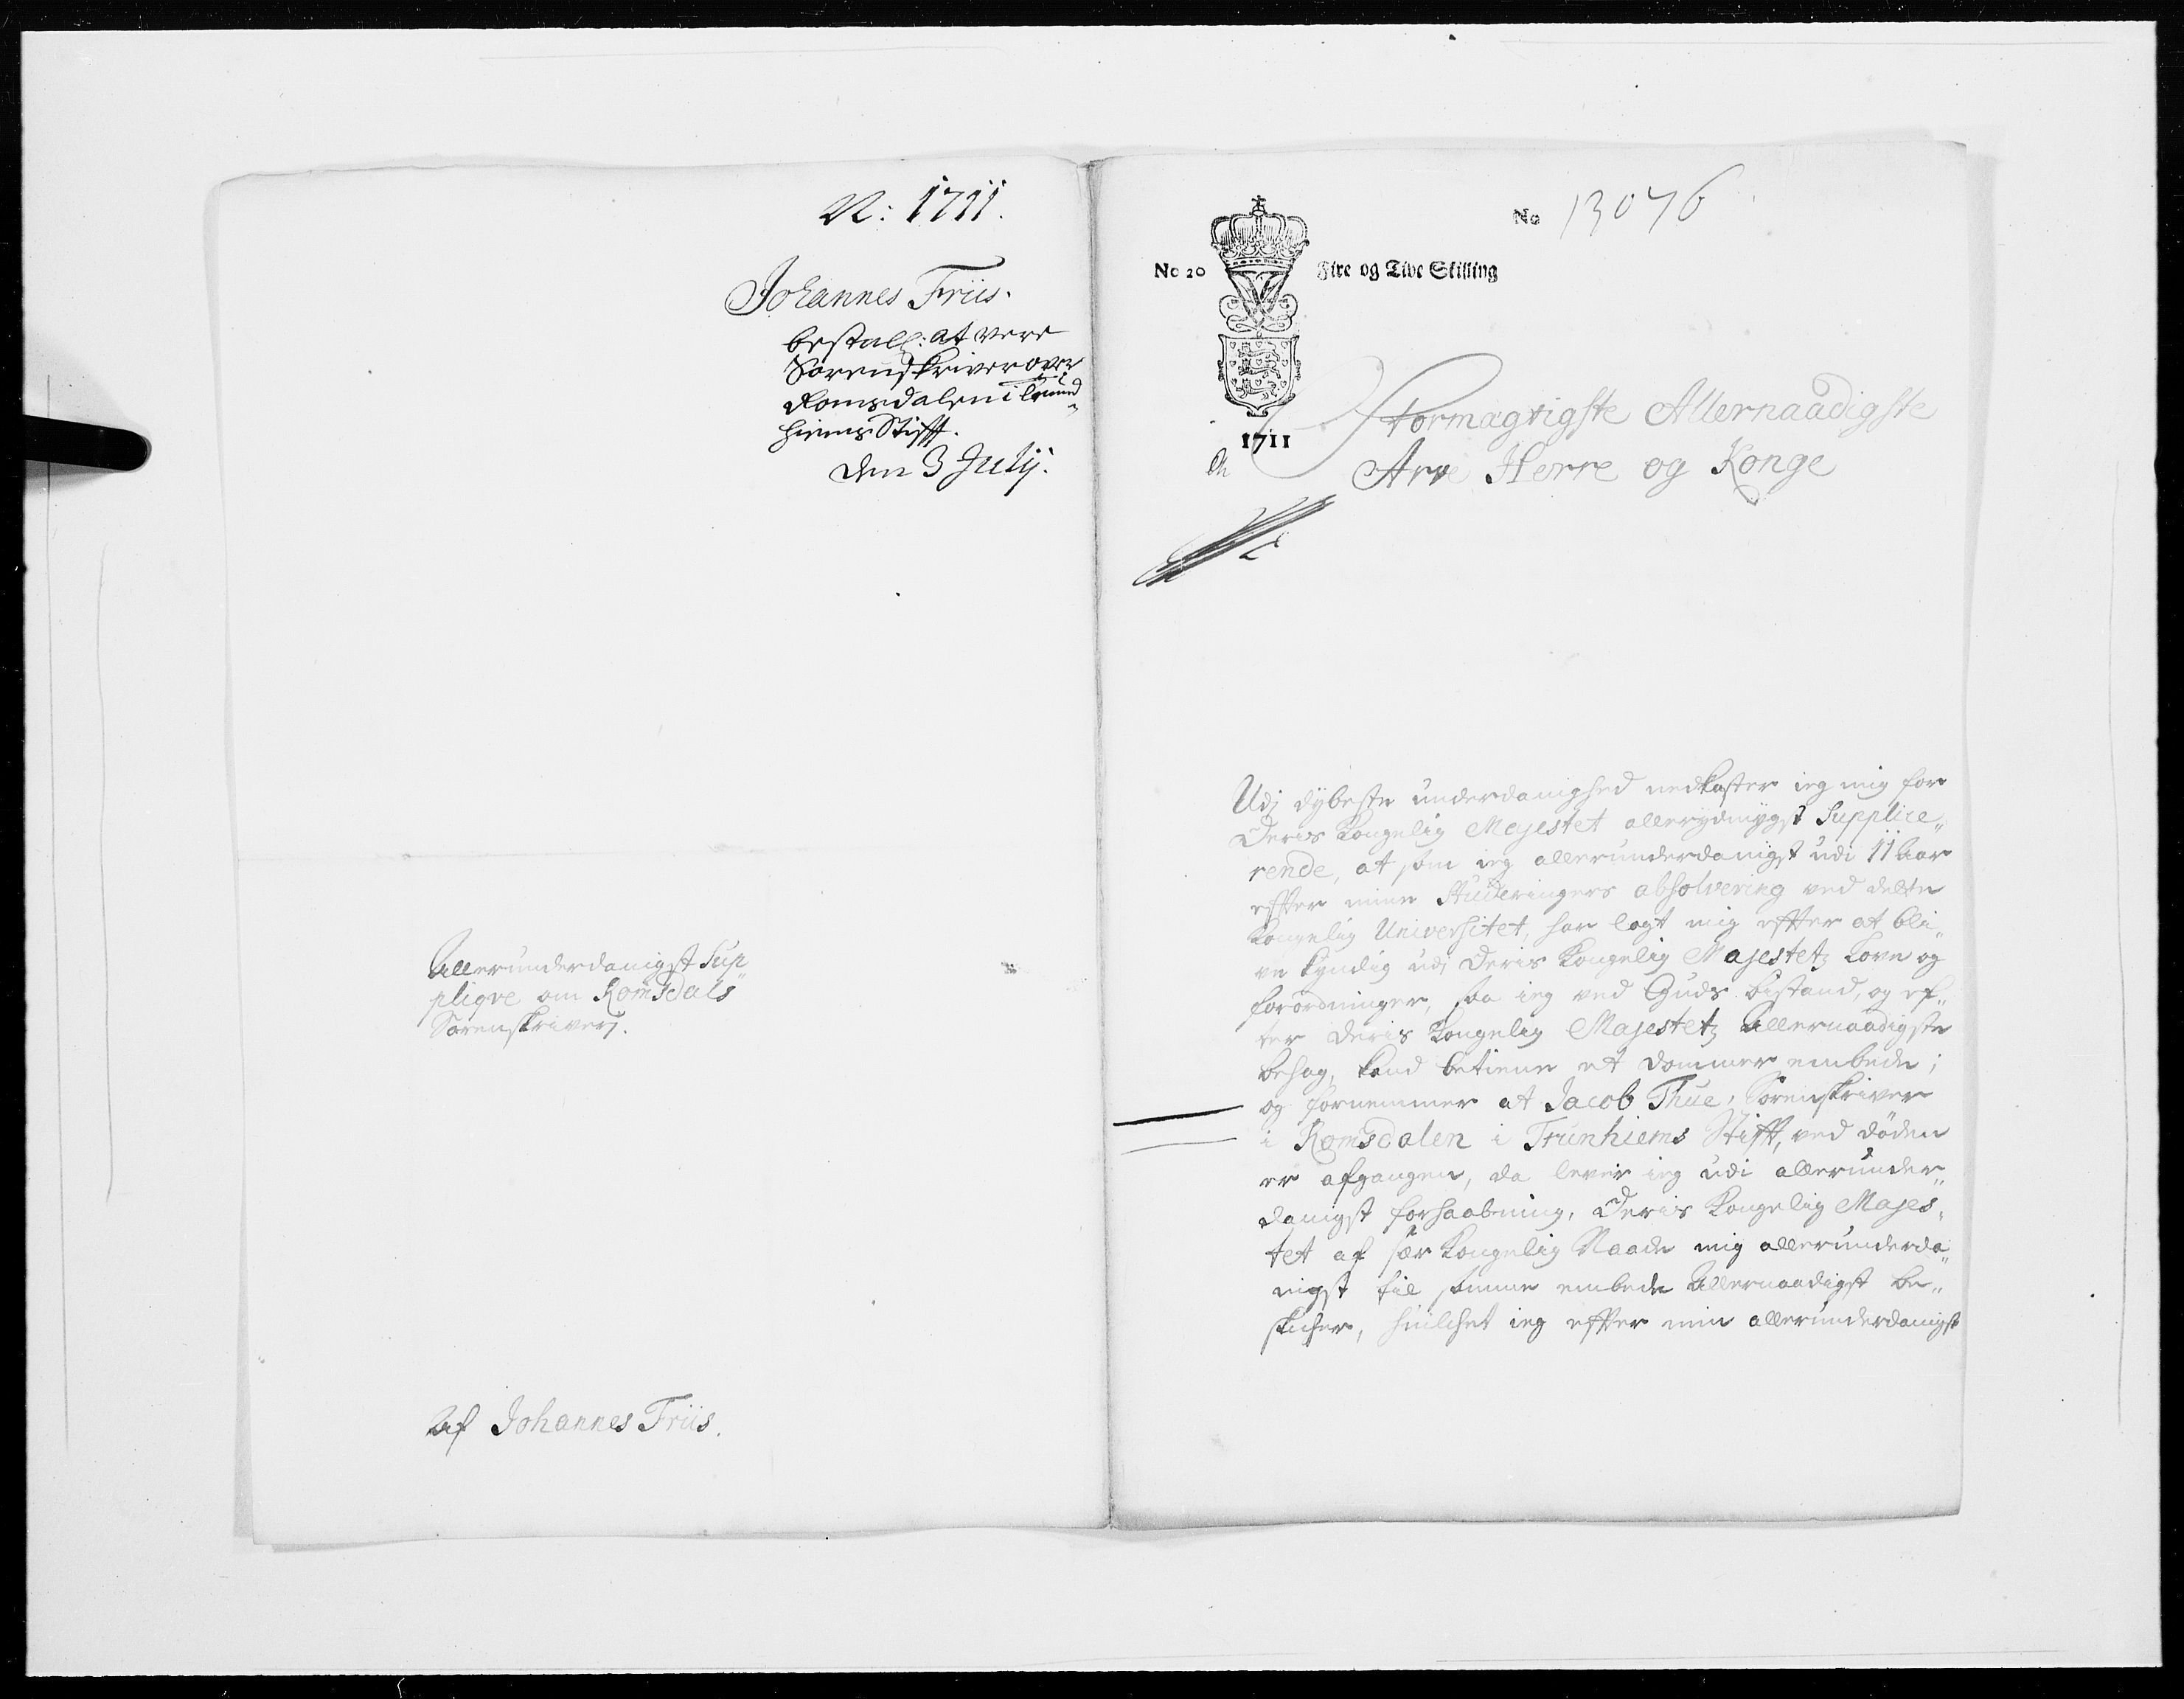 N: 1711.
Johannes Friis.
bestall: at være
Sorenskriver over
Romsdalen i Trund
hiems Stifft.
den 3 Julij.
Allerunderdanigst Sup
pliqve om Romsdals
Sorenskriverj.
Af Johannes Friis.
No 13076
No 20 Fire og Tive Skilling
1711
Stormägtigste Allernaadigste
Arve Herre og Konge
Udj dybeste underdanighed nedkaster ieg mig for
Deris Kongelig Mejestet allerydmygst Supplice„
rende, at som ieg allerunderdanigst udi 11 Aar
efter mine Studeringers absolvering ved dette
Kongelig Universitet, har lagt mig efter at bli„
ve kyndig udj Deris Kongelig Majestetz Love og
forordninger, saa ieg ved Guds bistand, og ef„
ter Deris Kongelig Majestetz Allernaadigste
behag, kand betiene et dommer embede;
og fornemmer at Jacob Thue, Sorenskriver
i Romsdalen i Trunhiems Stifft, ved døden
er afgangen, da lever ieg udi allerunder„
danigst forhaabning, Deris Kongelig Majes„
tet af sær Kongelig Naade mig allerunderda„
nigst til samme embede Allernaadigst be„
skicher, huilchet ieg efter min allerunderdanigst